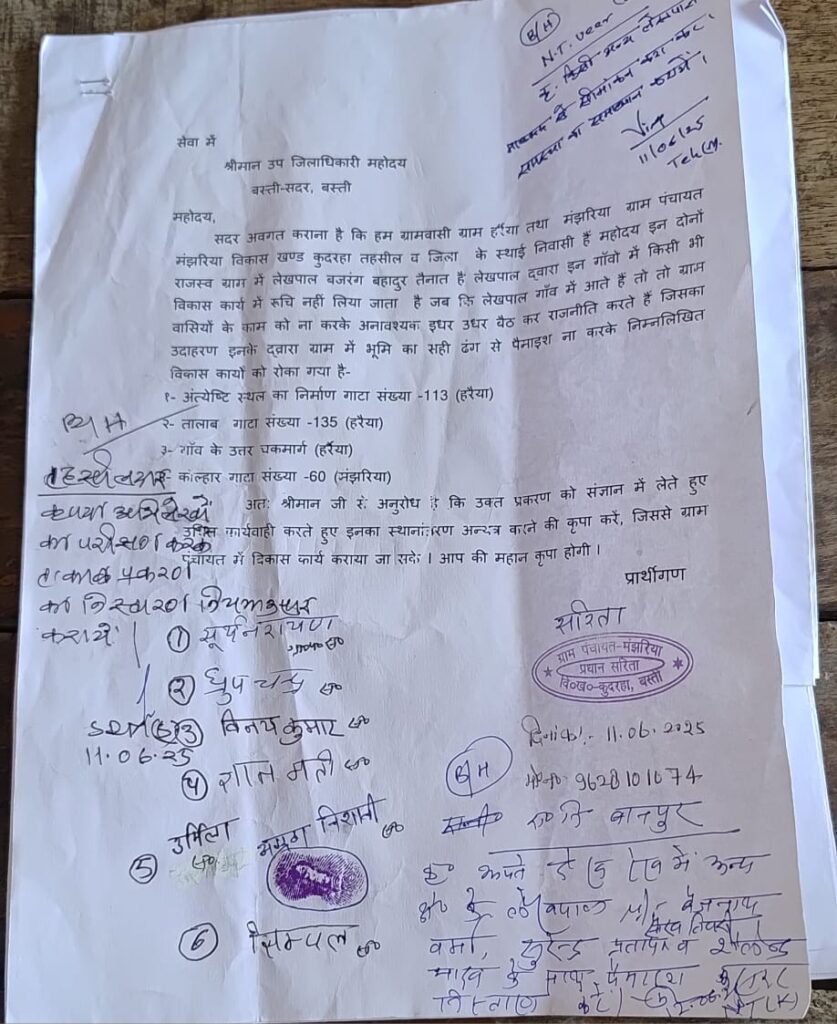 B/H
N.T. veer
कृ. किसी अन्य लेखपाल
से सीमांकन करा कर
समस्या का समाधान करायें।
11/06/25
Teh(M.
सेवा में
श्रीमान उप जिलाधिकारी महोदय
बस्ती-सदर, बस्ती
महोदय,
सदर अवगत कराना है कि हम ग्रामवासी ग्राम हरैया तथा मंझरिया ग्राम पंचायत
मंझरिया विकास खण्ड कुदरहा तहसील व जिला के स्थाई निवासी हैं महोदय इन दोनों
राजस्व ग्राम में लेखपाल बजरंग बहादुर तैनात है लेखपाल द्वारा इन गाँवो में किसी भी
विकास कार्य में रूचि नहीं लिया जाता है जब कि लेखपाल गाँव में आते हैं तो तो ग्राम
वासियों के काम को ना करके अनावश्यक इधर उधर बैठ कर राजनीति करते हैं जिसका
उदाहरण इनके द्वारा ग्राम में भूमि का सही ढंग से पैमाइश ना करके निम्नलिखित
विकास कायों को रोका गया है-
१- अंत्येष्टि स्थल का निर्माण गाटा संख्या -113 (हरैया)
२- तालाब गाटा संख्या -135 (हरैया)
३- गाँव के उत्तर चकमार्ग (हर्रैया)
कोल्हार गाटा संख्या -60 (मंझरिया)
अतः श्रीमान जी से अनुरोध है कि उक्त प्रकरण को संज्ञान में लेते हुए
उचित कार्यवाही करते हुए इनका स्थानांतरण अन्यत्र करने की कृपा करें, जिससे ग्राम
पंचायत में विकास कार्य कराया जा सके। आप की महान कृपा होगी।
प्रार्थीगण
B/H
तहसीलदार
कृपया अभिलेखों
का परीक्षण करके
प्रकरण
का निस्तारण नियमानुसार
करायें।
11.06.25
① सूर्यनरायण
② ध्रुप चन्द्र
③ विनय कुमार
④ शान्ति मती
⑤ उर्मिला
अंगूठा निशानी
⑥ सिम्पल
सरिता
ग्राम पंचायत-मंझरिया
प्रधान सरिता
वि०ख०-कुदरहा, बस्ती
दिनांक:- 11.06.2025
मो०न० 9628101074
B/H
रा० नि बानपुर
कृ० अपने
में अन्य
लेखपाल
बैजनाथ
वर्मा, सुरेन्द्र प्रताप व शैलेन्द्र
यादव के साथ पैमाइश
निस्तारण करें।
NT(K)